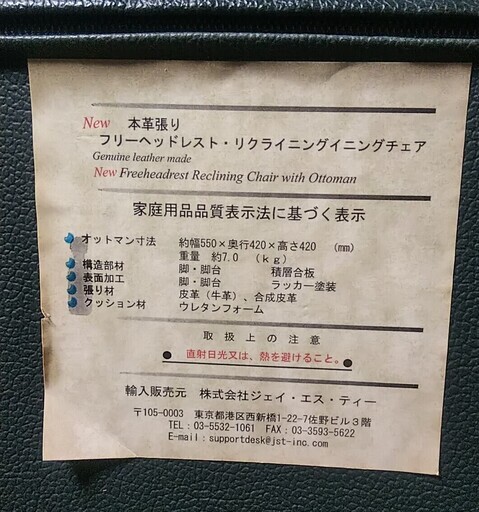 New 本革張り
フリーヘッドレスト・リクライニングイニングチェア
Genuine leather made
New Freeheadrest Reclining Chair with Ottoman
家庭用品品質表示法に基づく表示
オットマン寸法 約幅550×奥行420×高さ420 (mm)
重量 約7.0 (kg)
構造部材 脚・脚台 積層合板
表面加工 脚・脚台 ラッカー塗装
張り材 皮革(牛革)、合成皮革
クッション材 ウレタンフォーム
取扱上の注意
● 直射日光又は、熱を避けること。 ●
輸入販売元 株式会社ジェイ・エス・ティー
〒105-0003 東京都港区西新橋1-22-7佐野ビル3階
TEL:03-5532-1061 FAX:03-3593-5622
E-mail:supportdesk@jst-inc.com